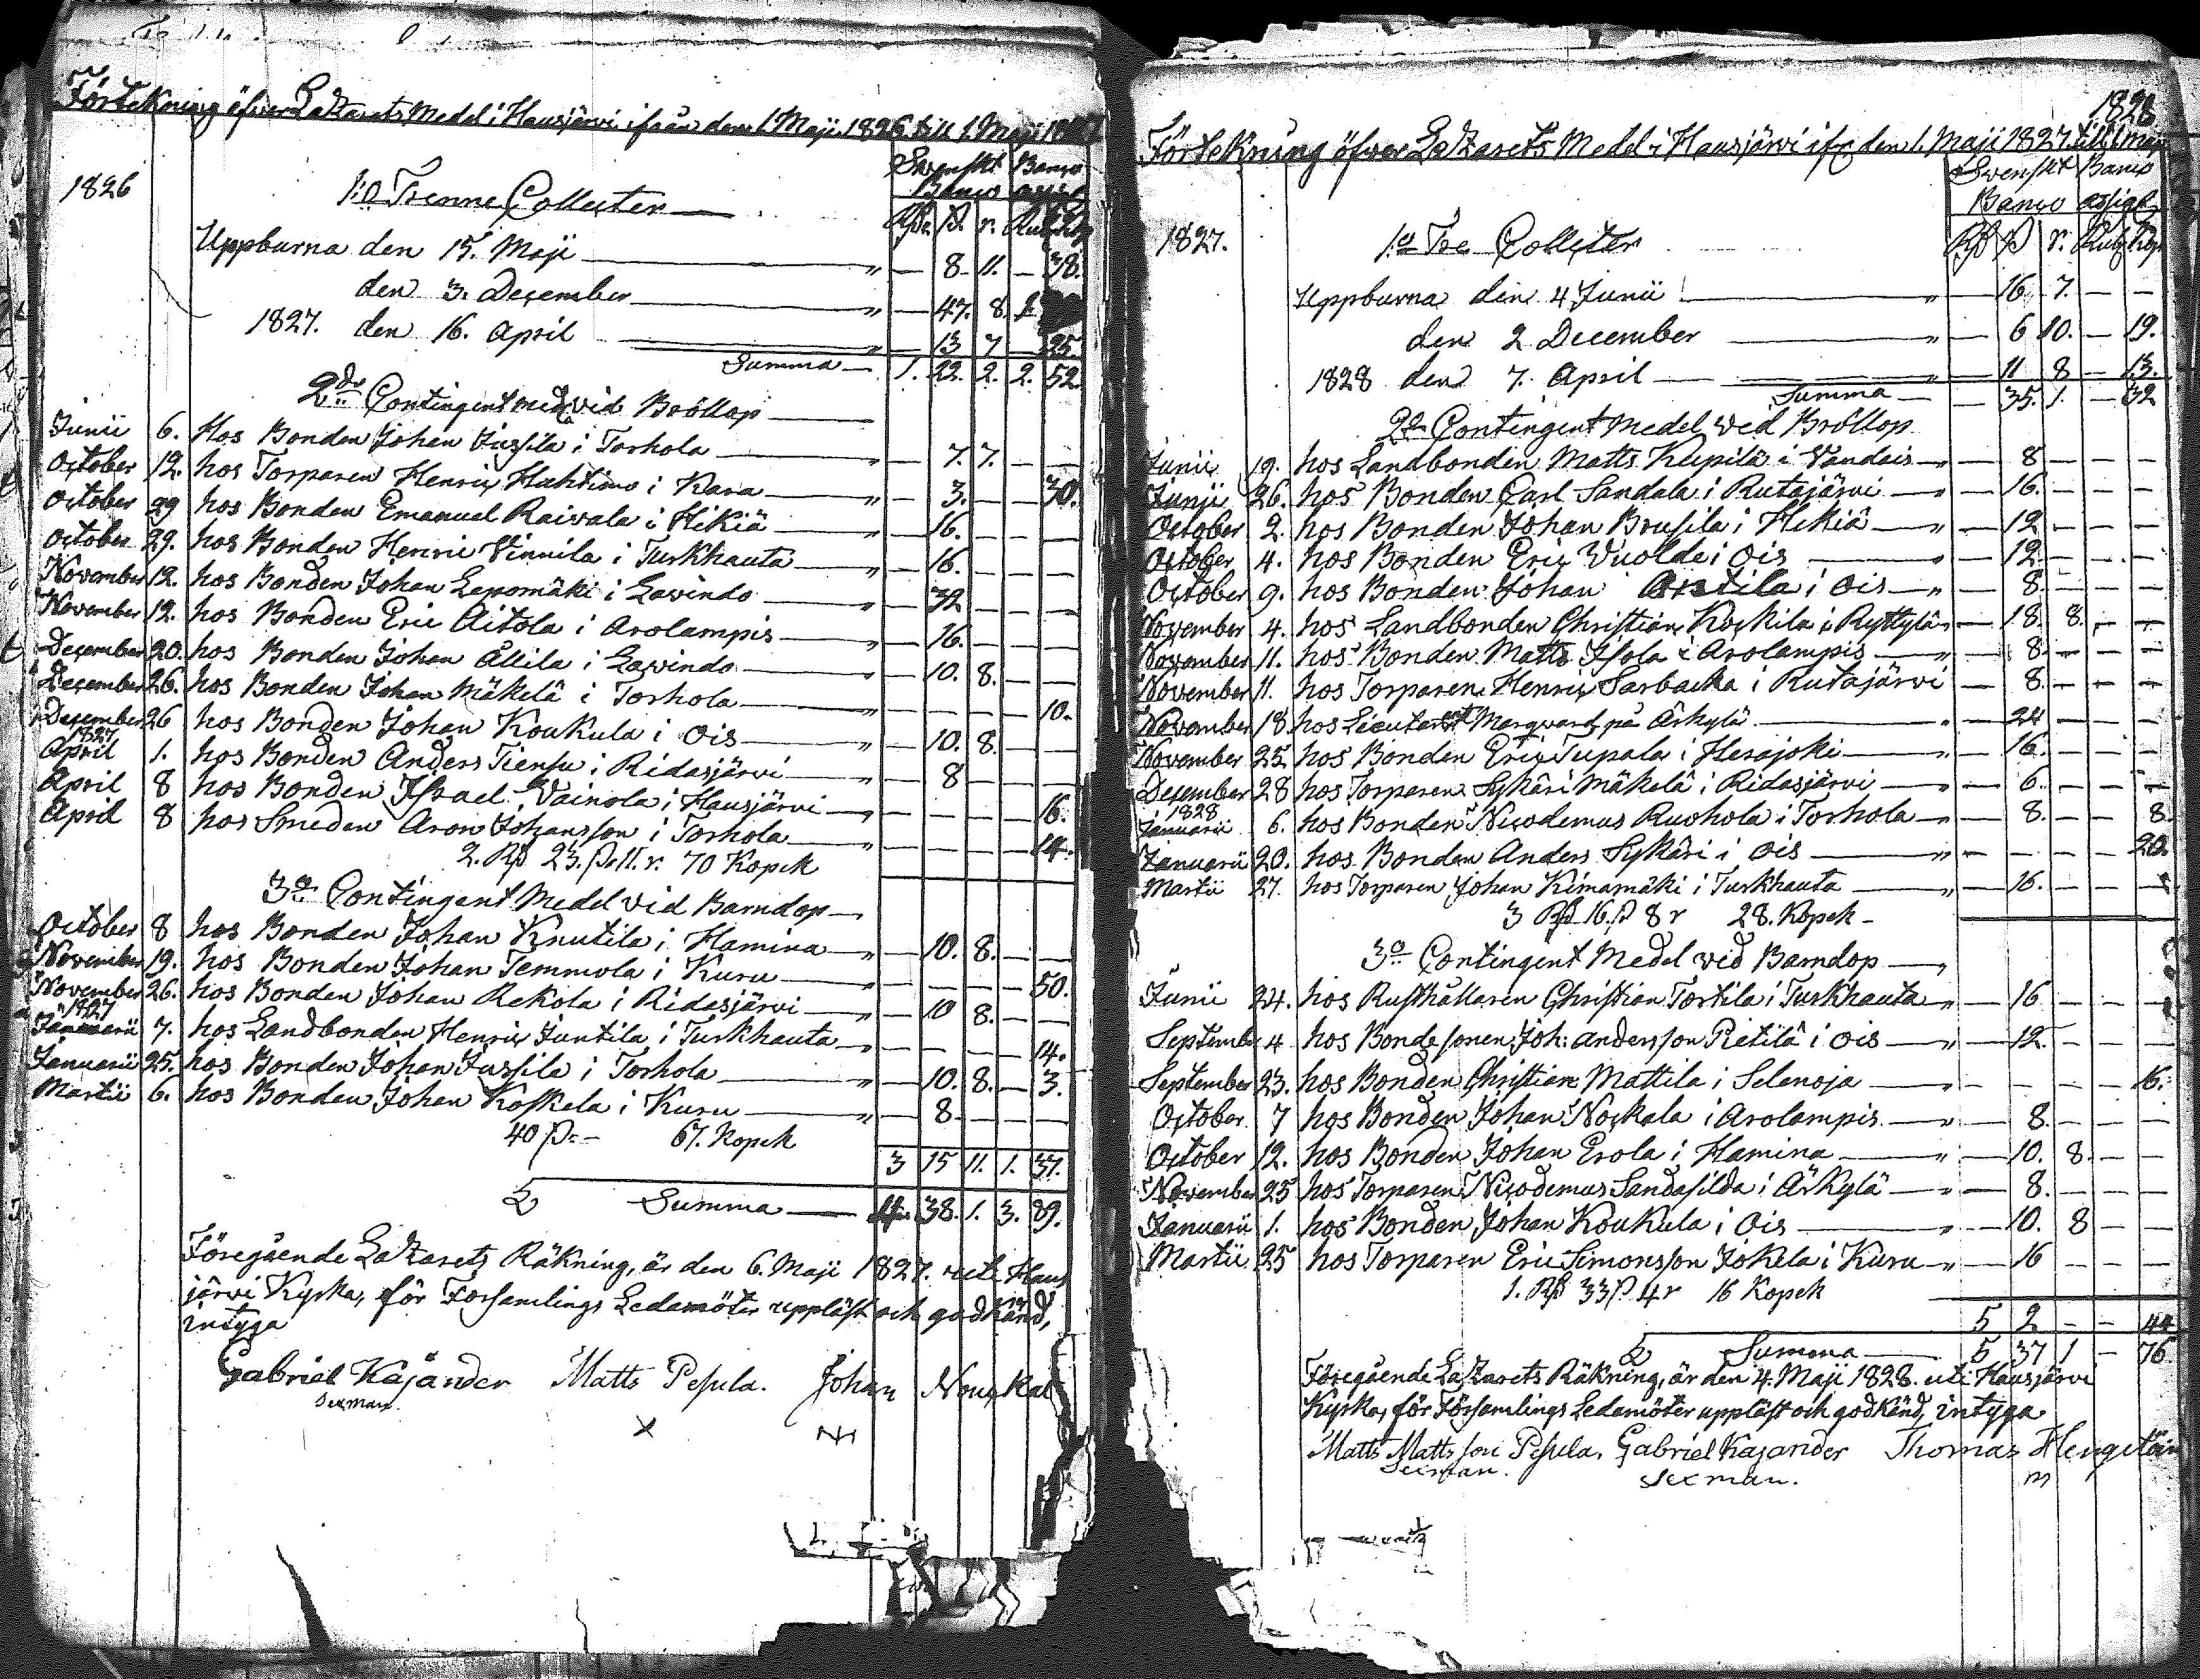 Förtekning öfver Lazarets Medel i Hausjärvi ifrån den 1 Maji 1826 till 1 Maji
Svenskt Banco
Banco assign
1826 1:o Trenne Collecter
Rdr ß. r. Rub. Kop
Uppburna den 15. Maji — 8. 11. — 38.
den 3. December — 47. 8.
1827. den 16. April — 13 7 — 25.
Summa 1. 22. 2. 2. 52.
2do Contingent med. vid Bröllop
Junii 6. Hos Bonden Johan Jussila i Torhola — 7. 7. — —
October 12. hos Torparen Henric Huhtimo i Kara — 3. — — 30.
October 29 hos Bonden Emanuel Raivala i Hikiä — 16. — — —
October 29. hos Bonden Henric Vinnila i Turkhauta — 16. — — —
November 12. hos Bonden Johan Lepomäki i Lavindo — 32 — — —
November 12. hos Bonden Eric Aitola i Arolampis — 16. — — —
December 20. hos Bonden Johan Allila i Lavindo — 10. 8. — —
December 26. hos Bonden Johan Mäkelä i Torhola — — — — 10.
December 26 hos Bonden Johan Koukula i Ois — 10. 8. — —
1827
April 1. hos Bonden Anders Tiensu i Ridasjärvi — 8 — — —
April 8 hos Bonden Israel Vainola i Hausjärvi — — — — 16.
April 8 hos Smeden Aron Johansson i Torhola — — — — 14.
2. Rß 23. ß. 11. r. 70 Kopek
3o Contingent Medel vid Barndop
October 8 hos Bonden Johan Knutila i Hamina — 10. 8. — —
November 19. hos Bonden Johan Temmola i Kuru — — — — 50.
November 26. hos Bonden Johan Rekola i Ridasjärvi — 10 8. — —
1827
Januarii 7. hos Landbonden Henric Juntila i Turkhauta — — — — 14.
Januarii 25. hos Bonden Johan Jussila i Torhola — 10. 8. — 3.
Martii 6. hos Bonden Johan Koskela i Kuru — 8 — — —
40 ß. — 67. Kopek
3 15 11. 1. 37.
Summa 38. 1. 3. 89.
Föregående Lazarets Räkning, är den 6. Maji 1827. uti Haus
järvi Kyrka, för Församlings Ledamöter uppläst och godkänd,
intyga
Gabriel Kajander Matts Pesula. Johan
Sexman.
X
1828
Förtekning öfver Lazarets Medel i Hausjärvi ifr. den 1. Maji 1827 till 1 Maji
Svenskt Banco
Banco assign
Rß ß r. Rub. Kop.
1827. 1o Tre Collecter
Uppburna den 4 Junii — 16. 7. — —
den 2 December — 6 10. — 19.
1828 den 7. April — 11 8 — 13.
Summa — 35. 1. — 32
2do Contingent Medel vid Bröllop
Junii 19. hos Landbonden Matts Kupila i Vandais — 8 — — —
Junii 26. hos Bonden Carl Sandala i Rutajärvi — 16. — — —
October 2. hos Bonden Johan Brusila i Hikiä — 12 — — —
October 4. hos Bonden Eric Vuolde i Ois — 12. — — —
October 9. hos Bonden Johan Antila i Ois — 8. — — —
November 4. hos Landbonden Christian Kockila i Ryttylä — 18. 8. — —
November 11. hos Bonden Matts Isola i Arolampis — 8. — — —
November 11. hos Torparen Henric Sarbacka i Rutajärvi — 8. — — —
November 18. hos Lieutenant Marqvard på Ärkylä — 24 — — —
November 25. hos Bonden Eric Tupala i Herajoki — 16. — — —
December 28 hos Torparen Sykäri Mäkelä i Ridasjärvi — 6. — — —
1828
Januarii 6. hos Bonden Nicodemus Ruohola i Torhola — 8. — — 8.
Januarii 20. hos Bonden Anders Sykäri i Ois — — — — 20.
Martii 27. hos Torparen Johan Kimamäki i Turkhauta — 16. — — —
3 Rß 16. ß 8 r 28. Kopek
3o Contingent Medel vid Barndop
Junii 24. hos Rusthållaren Christian Tortila i Turkhauta — 16 — — —
Septemb. 4 hos Bondesonen Joh: Andersson Pietilä i Ois — 12. — — —
September 23. hos Bonden Christian Mattila i Selenoja — — — — 16.
October 7 hos Bonden Johan Nockala i Arolampis — 8. — — —
October 12. hos Bonden Johan Erola i Hamina — 10. 8. — —
November 25 hos Torparen Nicodemus Sandasilda i Ärkylä — 8. — — —
Januarii 1. hos Bonden Johan Koukula i Ois — 10. 8 — —
Martii 25 hos Torparen Eric Simonsson Jokela i Kuru — 16 — — —
1. Rß 33 ß 4 r 16 Kopek
5 2 — — 44
Summa 5 37 1 — 76
Föregående Lazarets Räkning, är den 4. Maji 1828. uti Hausjärvi
Kyrka, för Församlings Ledamöter uppläst och godkänd, intyga
Matts Mattsson Pesula. Gabriel Kajander Thomas
Sexman. Sexman.